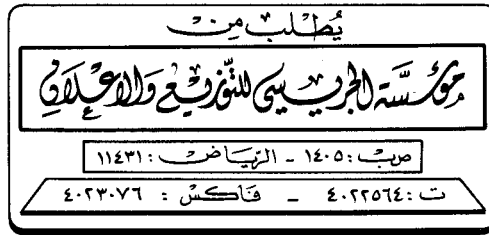 يُطلب مِن
مؤسَّسَة الجريسي للتّوزيع وَالإعْلان
صب : ١٤٠٥ - الريَاض : ١١٤٣١
ت : ٤٠٢٢٥٦٤ - فَاكسْ : ٤٠٢٣٠٧٦